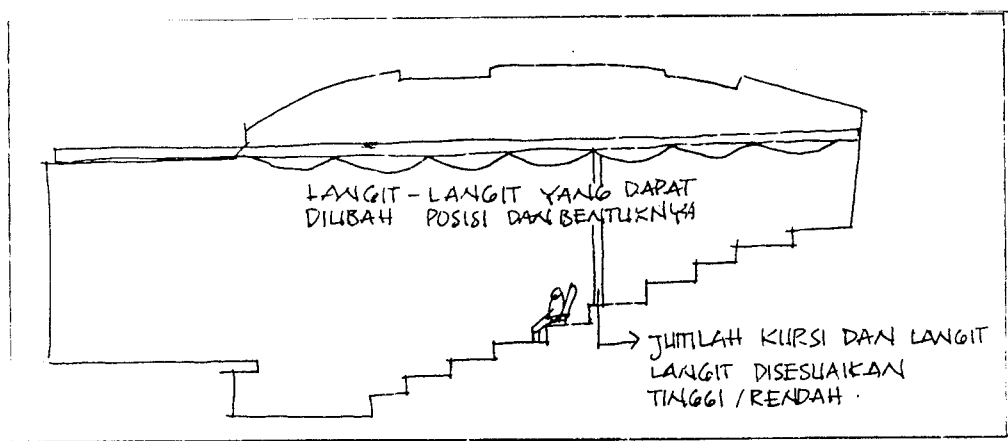 LANGIT-LANGIT YANG DAPAT
DIUBAH POSISI DAN BENTUKNYA
JUMLAH KURSI DAN LANGIT
LANGIT DISESUAIKAN
TINGGI / RENDAH .